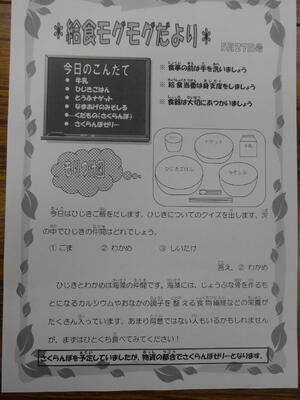 給食モグモグだより
5月27日号
今日のこんだて
• 牛乳
• ひじきごはん
• とうふナゲット
• なまあげのみそしる
• くだもの(さくらんぼ)
• さくらんぼゼリー
※ 食事の前は手を洗いましょう
※ 給食当番は身支度をしましょう
※ 食器は大切にあつかいましょう
ナゲット
牛乳
ひじきごはん
みそしる
今日はひじきご飯をだします。ひじきについてのクイズを出します。次
の中でひじきの仲間はどれでしょう。
① ごま ② わかめ ③ しいたけ
答え、② わかめ
ひじきとわかめは海藻の仲間です。海藻には、じょうぶな骨を作るも
とになるカルシウムやおなかの調子を整える食物繊維などの栄養が
たくさん入っています。あまり得意ではない人もいるかもしれません
が、まずはひとくち食べてみてください！
さくらんぼを予定していましたが、物資の都合でさくらんぼゼリーとなります。